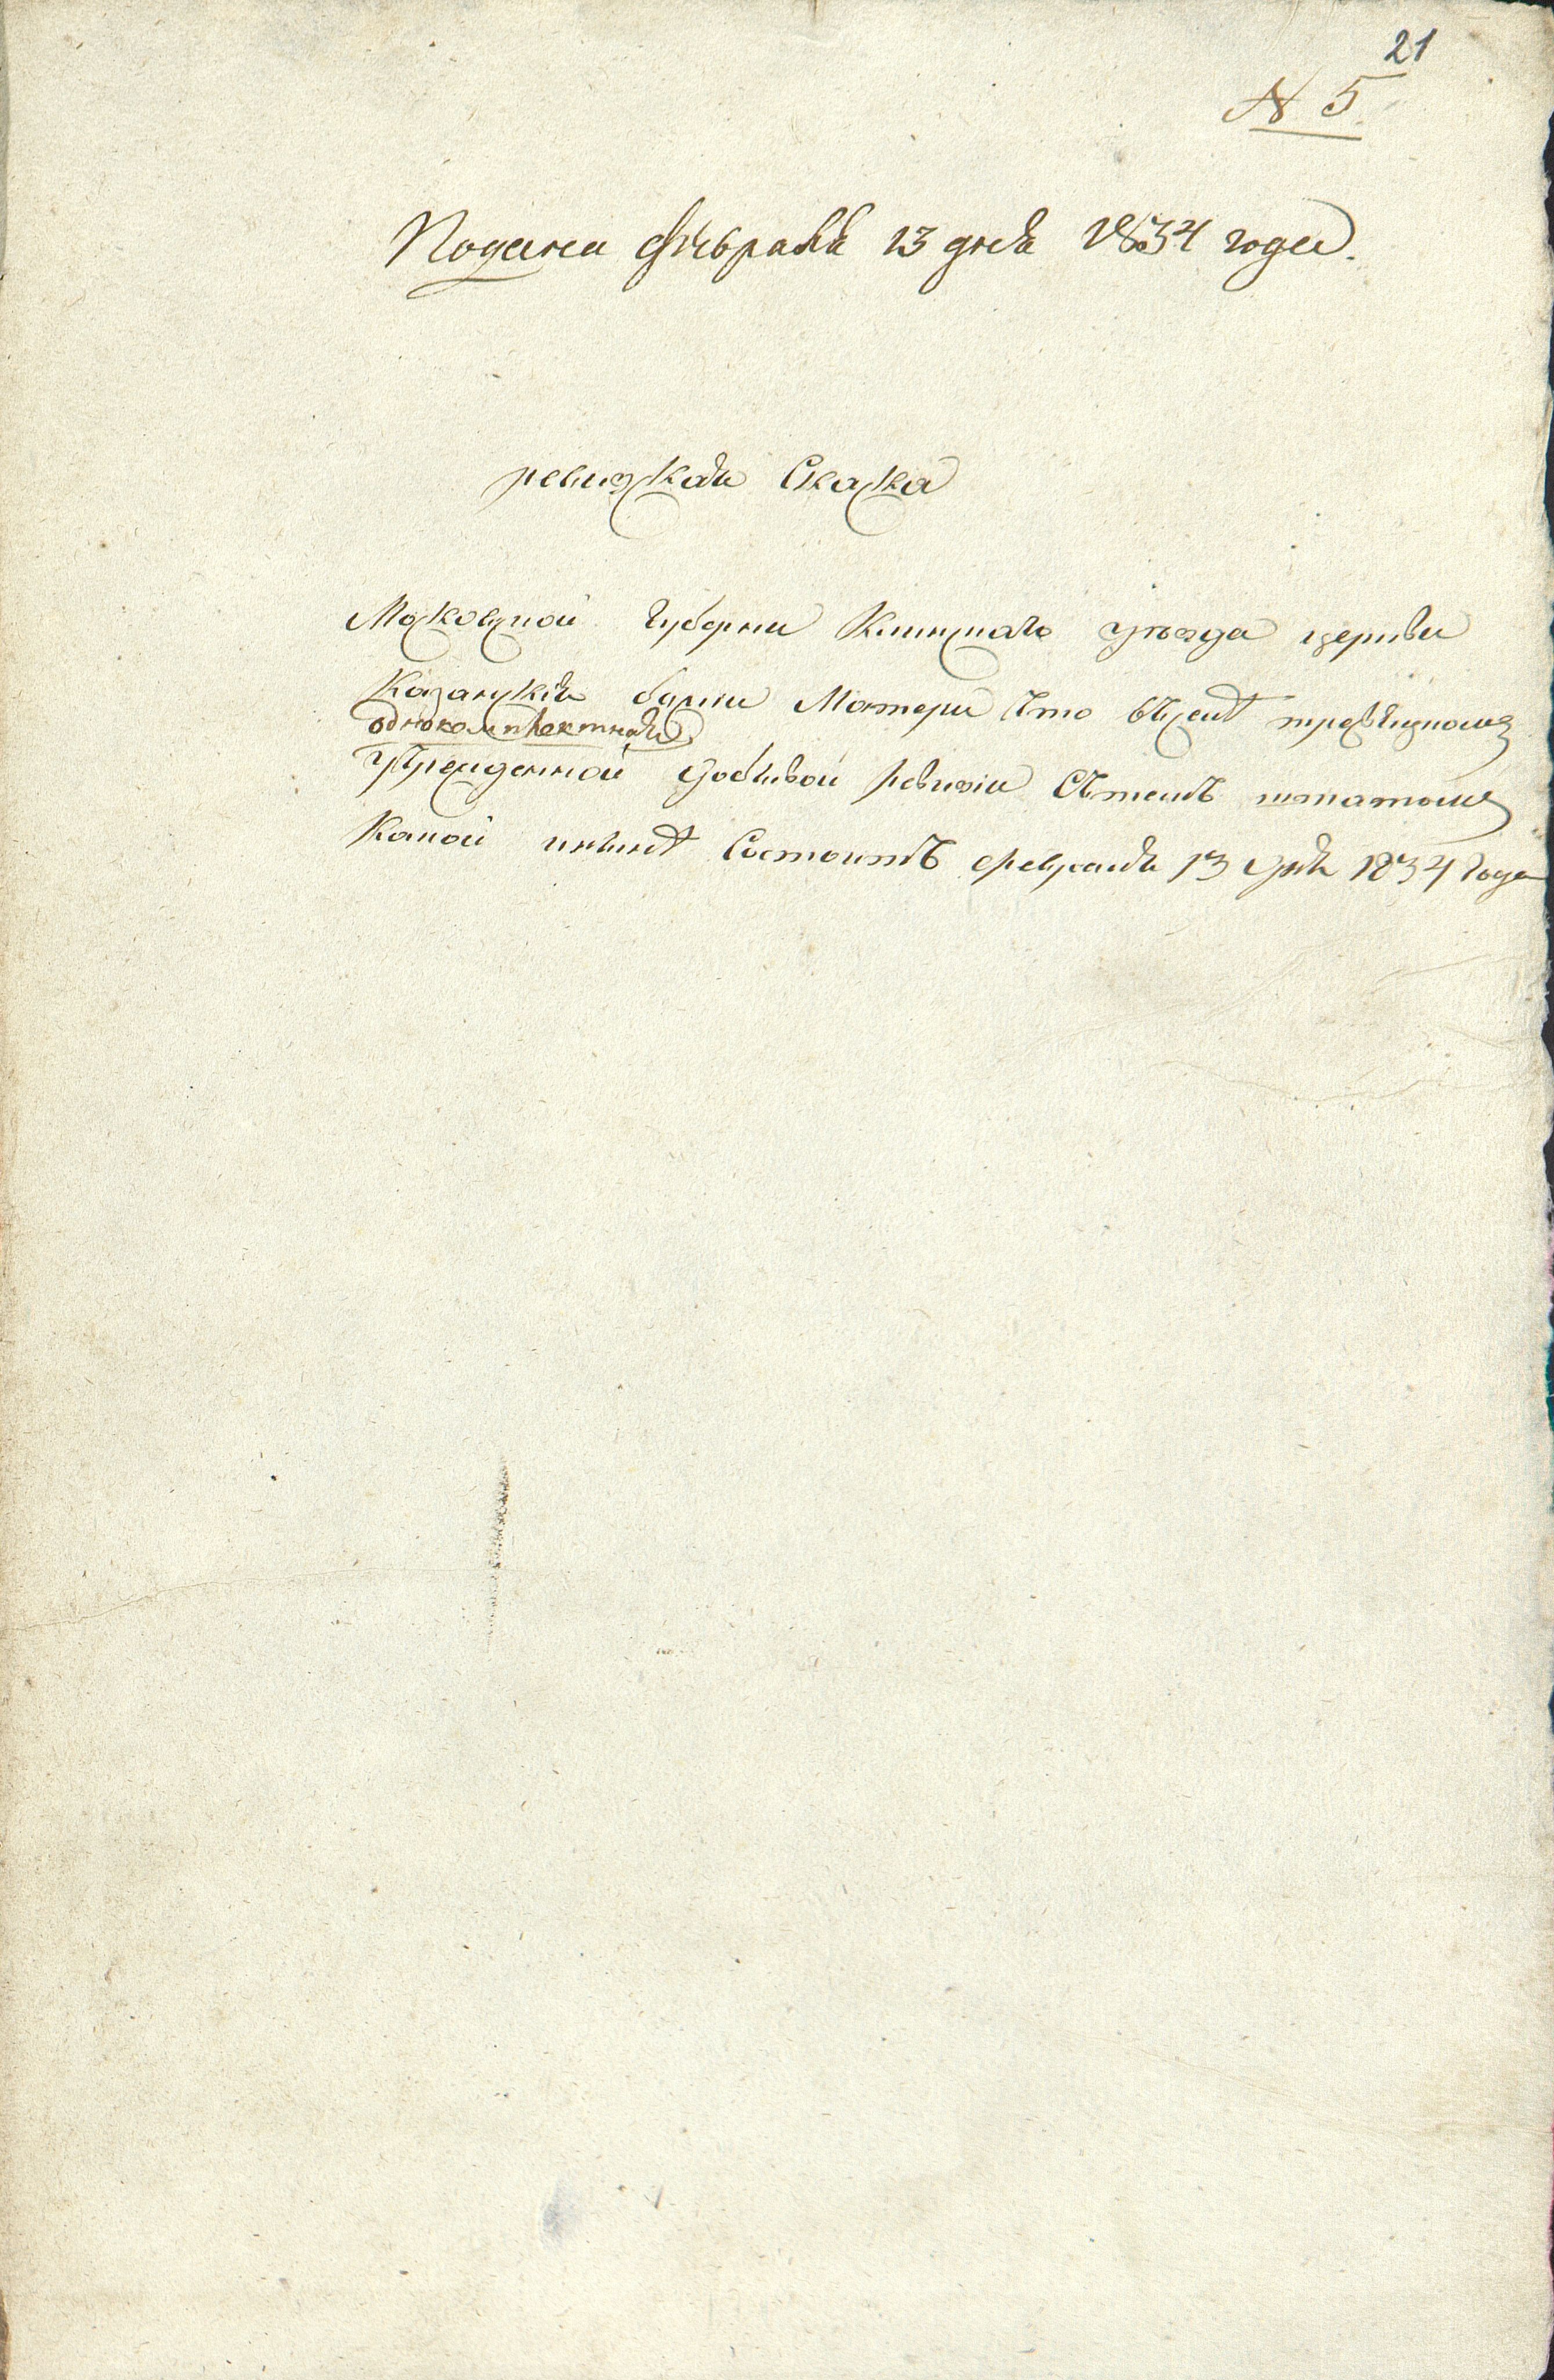 21
N 5
Подана февраля 13 дня 1834 года.
ревизская Сказка
Московской Губернии Клинскаго уезда церкви
Казанския божии Матери что въселе
однокомплектная
учрежденной 
какой ныне Состоитъ февраля 13 дня 1834 года